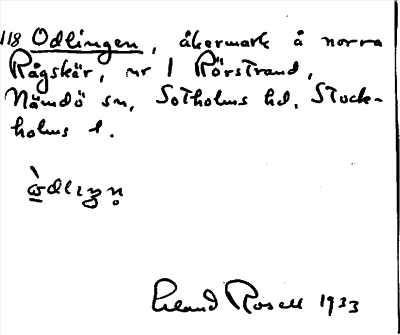 118 Odlingen, åkermark å norra
Rågskär, nr 1 Rörstrand,
Nämdö sn, Sotholms hd, Stock-
holms l.
Erland Rosell 1933